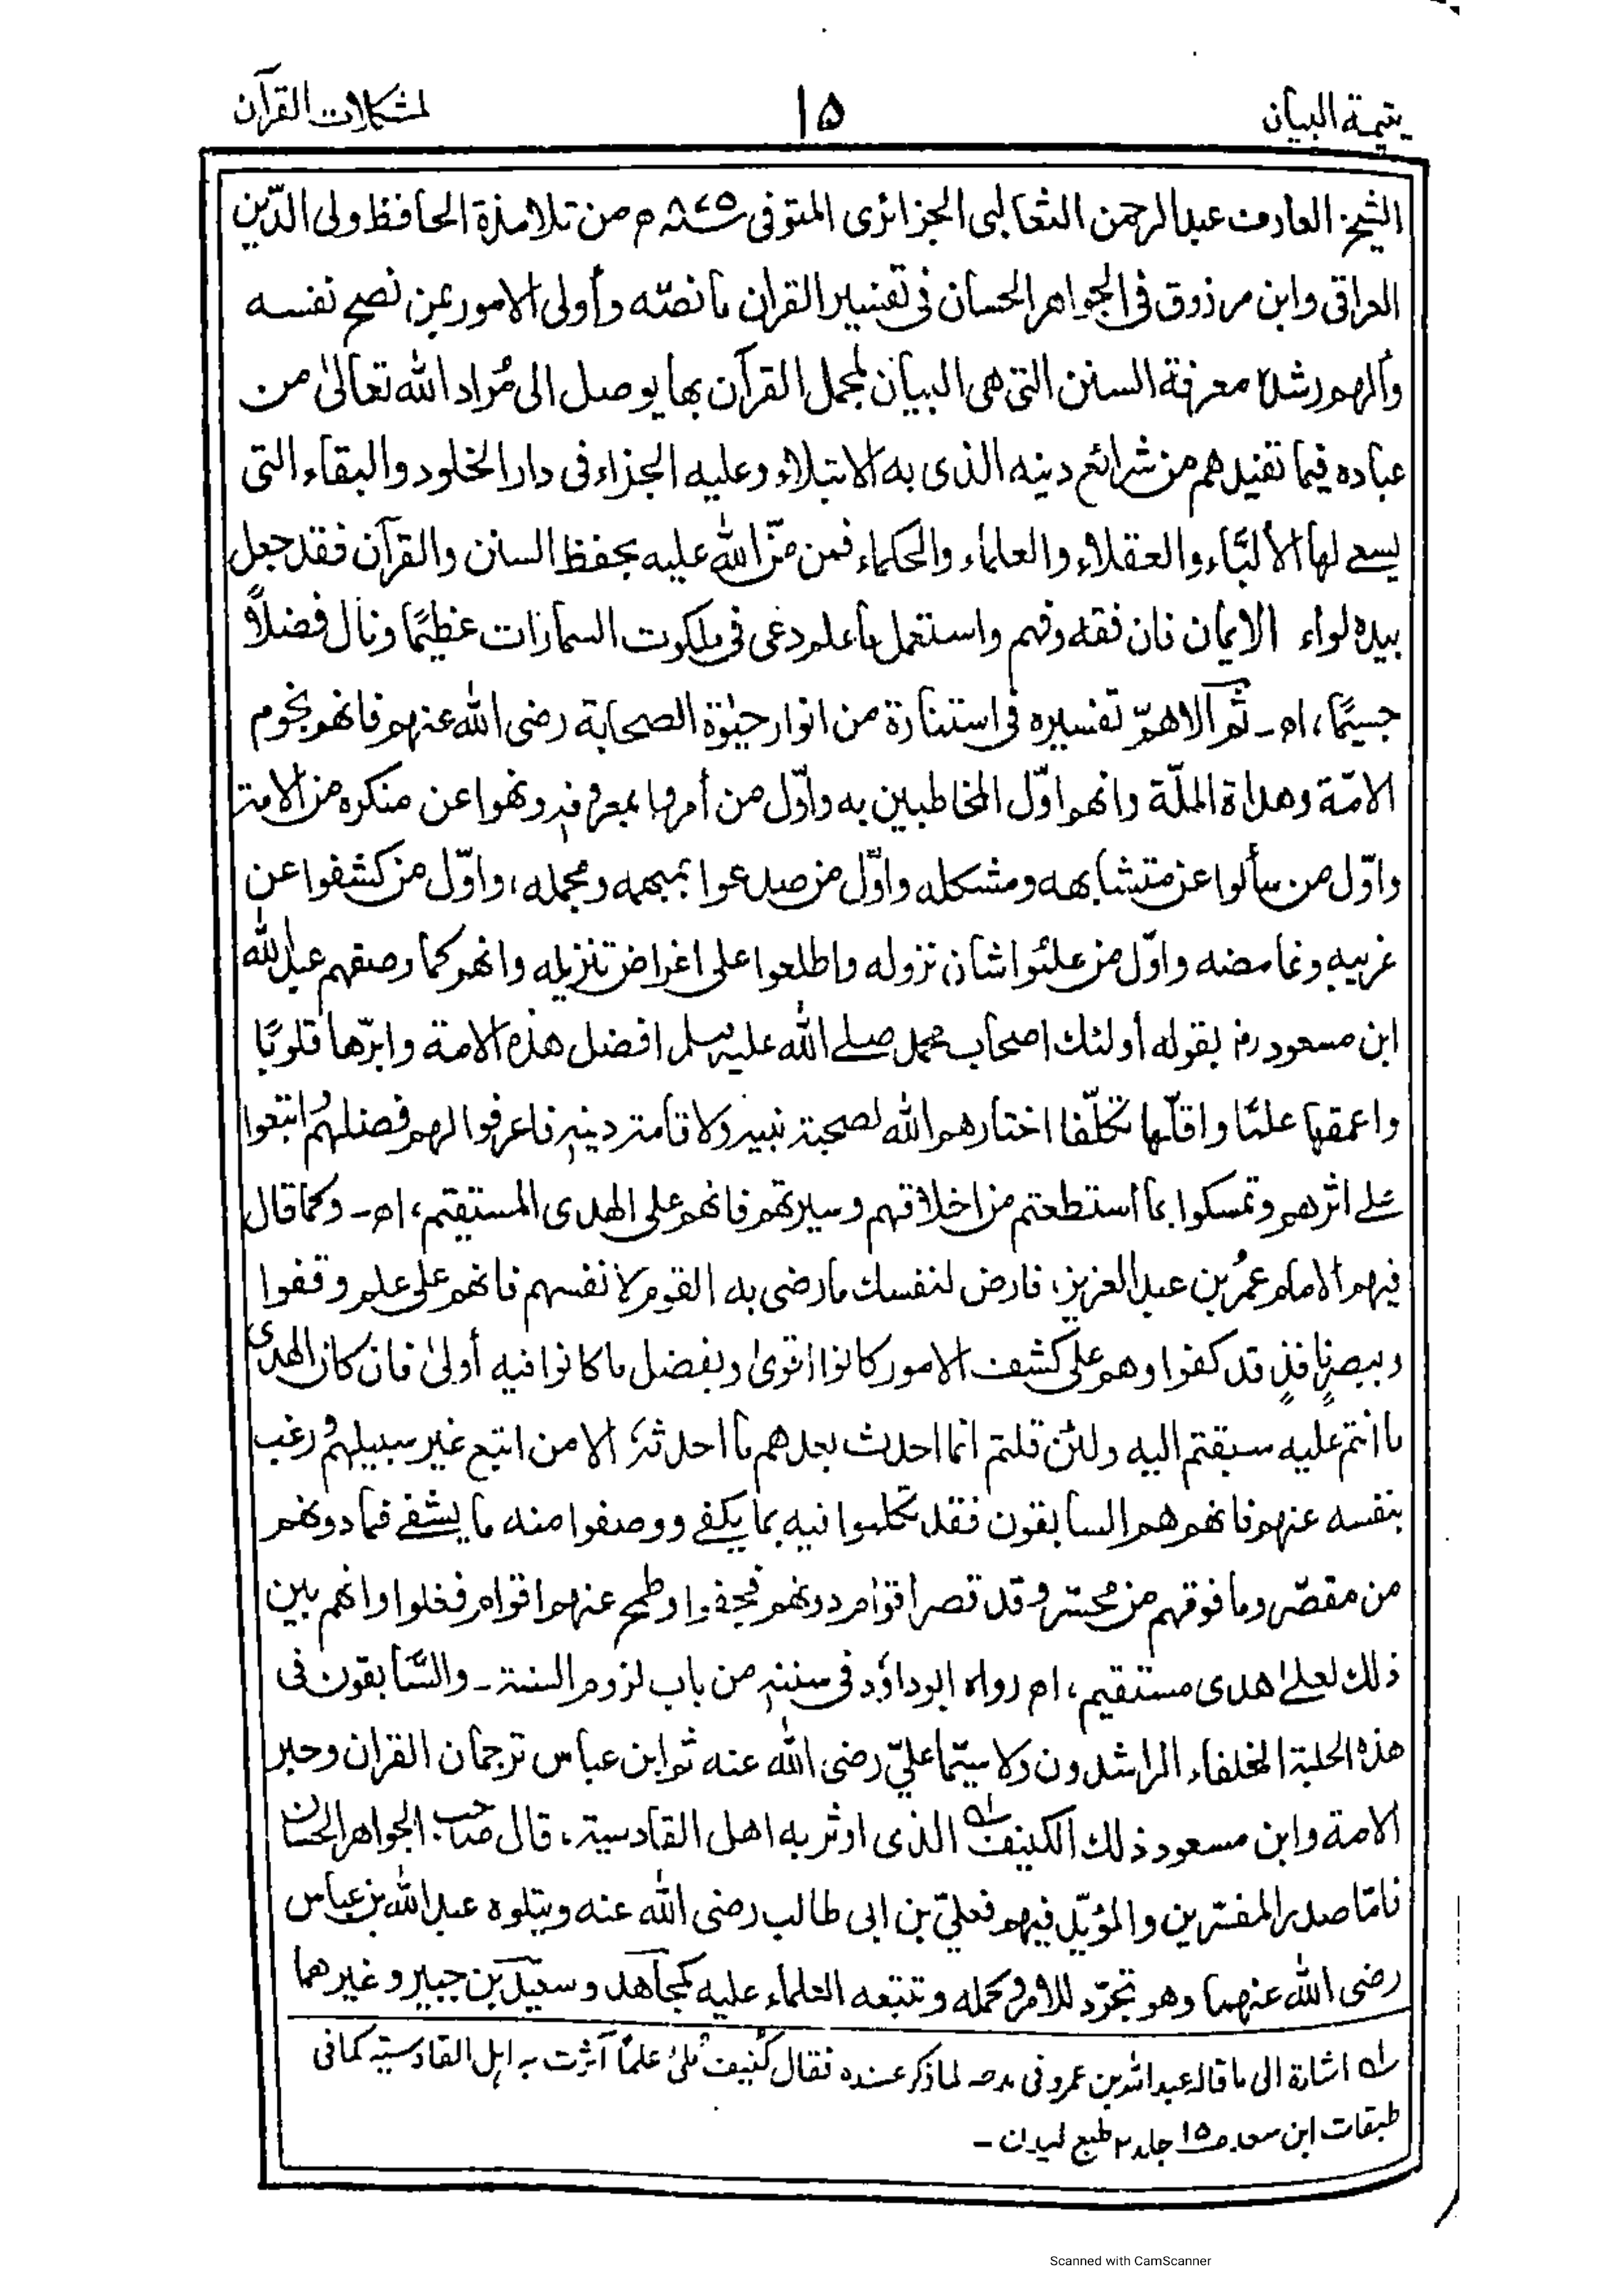 يتيمة البيان
١٥
لمشكلات القرآن
الشيخ العارف عبدالرحمن الثعالبى الجزائرى المتوفى ٨٧٥ھ من تلامذة الحافظ ولى الدّين
العراقى وابن مرزوق فى الجواهر الحسان فى تفسير القران ما نصّه وأولى الامور عن نصح نفسه
وألهم رشده معرفة السنن التى هى البيان لمجمل القرآن بها يوصل الى مُراد الله تعالىٰ من
عباده فيما تفيدهم من شرائع دينه الذى به الابتلاء وعليه الجزاء فى دار الخلود والبقاء التى
يسعى لها الألبّاء والعقلاء والعلماء والحكماء فمن منّ الله عليه بحفظ السنن والقرآن فقد جعل
بيده لواء الايمان فان فقه وفهم واستعمل ما علم دعى فى ملكوت السماوات عظيمًا ونال فضلاً
جسيمًا، اھ۔ ثم الاهمّ تفسيره فى استنارة من انوار حيٰوة الصحابة رضى الله عنهم فانهم نجوم
الامّة وهداة الملّة وانهم اوّل المخاطبين به واوّل من أمروا بمعروفه ونهوا عن منكره من الامة
واوّل من سألوا عن متشابهه ومشكله واوّل من صدعوا بمبهمه ومجمله، واوّل من كشفوا عن
غريبه وغامضه واوّل من علموا شان نزوله واطلعوا على اغراض تنزيله وانهم كما وصفهم عبدالله
ابن مسعود رض بقوله أولئك اصحاب محمد صلى الله عليه وسلم افضل هذه الامة وابرّها قلوبًا
واعمقها علمًا واقلّها تكلّفا اختارهم الله لصحبة نبيه ولاقامة دينه فاعرفوا لهم فضلهُم اتبعوا
على اثرهم وتمسكوا بما استطعتم من اخلاقهم وسيرتهم فانهم على الهدى المستقيم، اھ۔ وكما قال
فيهم الامام عمرُ بن عبدالعزيز، فارض لنفسك ما رضى به القوم لانفسهم فانهم على علم وقفوا
وببصرٍ نافذٍ قد كفوا وهم على كشف الامور كانوا اقوىٰ وبفضل ما كانوا فيه أولىٰ فان كان الهدى
ما انتم عليه سبقتم اليه ولئن قلتم انما احدث بعدهم ما احدثه الا من اتبع غير سبيلهم ورغب
بنفسه عنهم فانهم هم السابقون فقد تكلموا فيه بما يكفى ووصفوا منه ما يشفى فما دونهم
من مقصّر وما فوقهم من محسّر وقد قصر اقوام دونهم فجفوا وطمح عنهم اقوام فغلوا وانهم بين
ذلك لعلىٰ هدى مستقيم، اھ رواه ابوداؤد فى سننه من باب لزوم السنة۔ والسّابقون فى
هذه الحلبة الخلفاء الراشدون ولا سيّما علىّ رضى الله عنه ثم ابن عباس ترجمان القران وحبر
الامة وابن مسعود ذلك الكنيف ؎ الذى اوثر به اهل القادسية، قال صاحب الجواهر الحسان
فامّا صدر المفسّرين والمؤيّد فيهم فعلىّ بن ابى طالب رضى الله عنه ويتلوه عبدالله بن عباس
رضى الله عنهما وهو تجرّد للامر وكمله وتتبعه العلماء عليه كمجاهد وسعيد بن جبير وغيرهما
؎ اشارة الى ما قاله عبدالله بن عمرو فى مدحه لما ذكر عنده فقال كنيف ملئ علماً آثرت به اهل القادسية كما فى
طبقات ابن سعد ص١٥ جلد٢ طبع ليدن ـ
Scanned with CamScanner